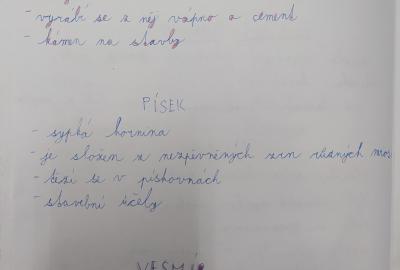 - vyrábí se z něj vápno a cement
- kámen na stavby
PÍSEK
- sypká hornina
- je složen z nezpevněných zrn různých
- těží se v pískovnách
- stavební účely